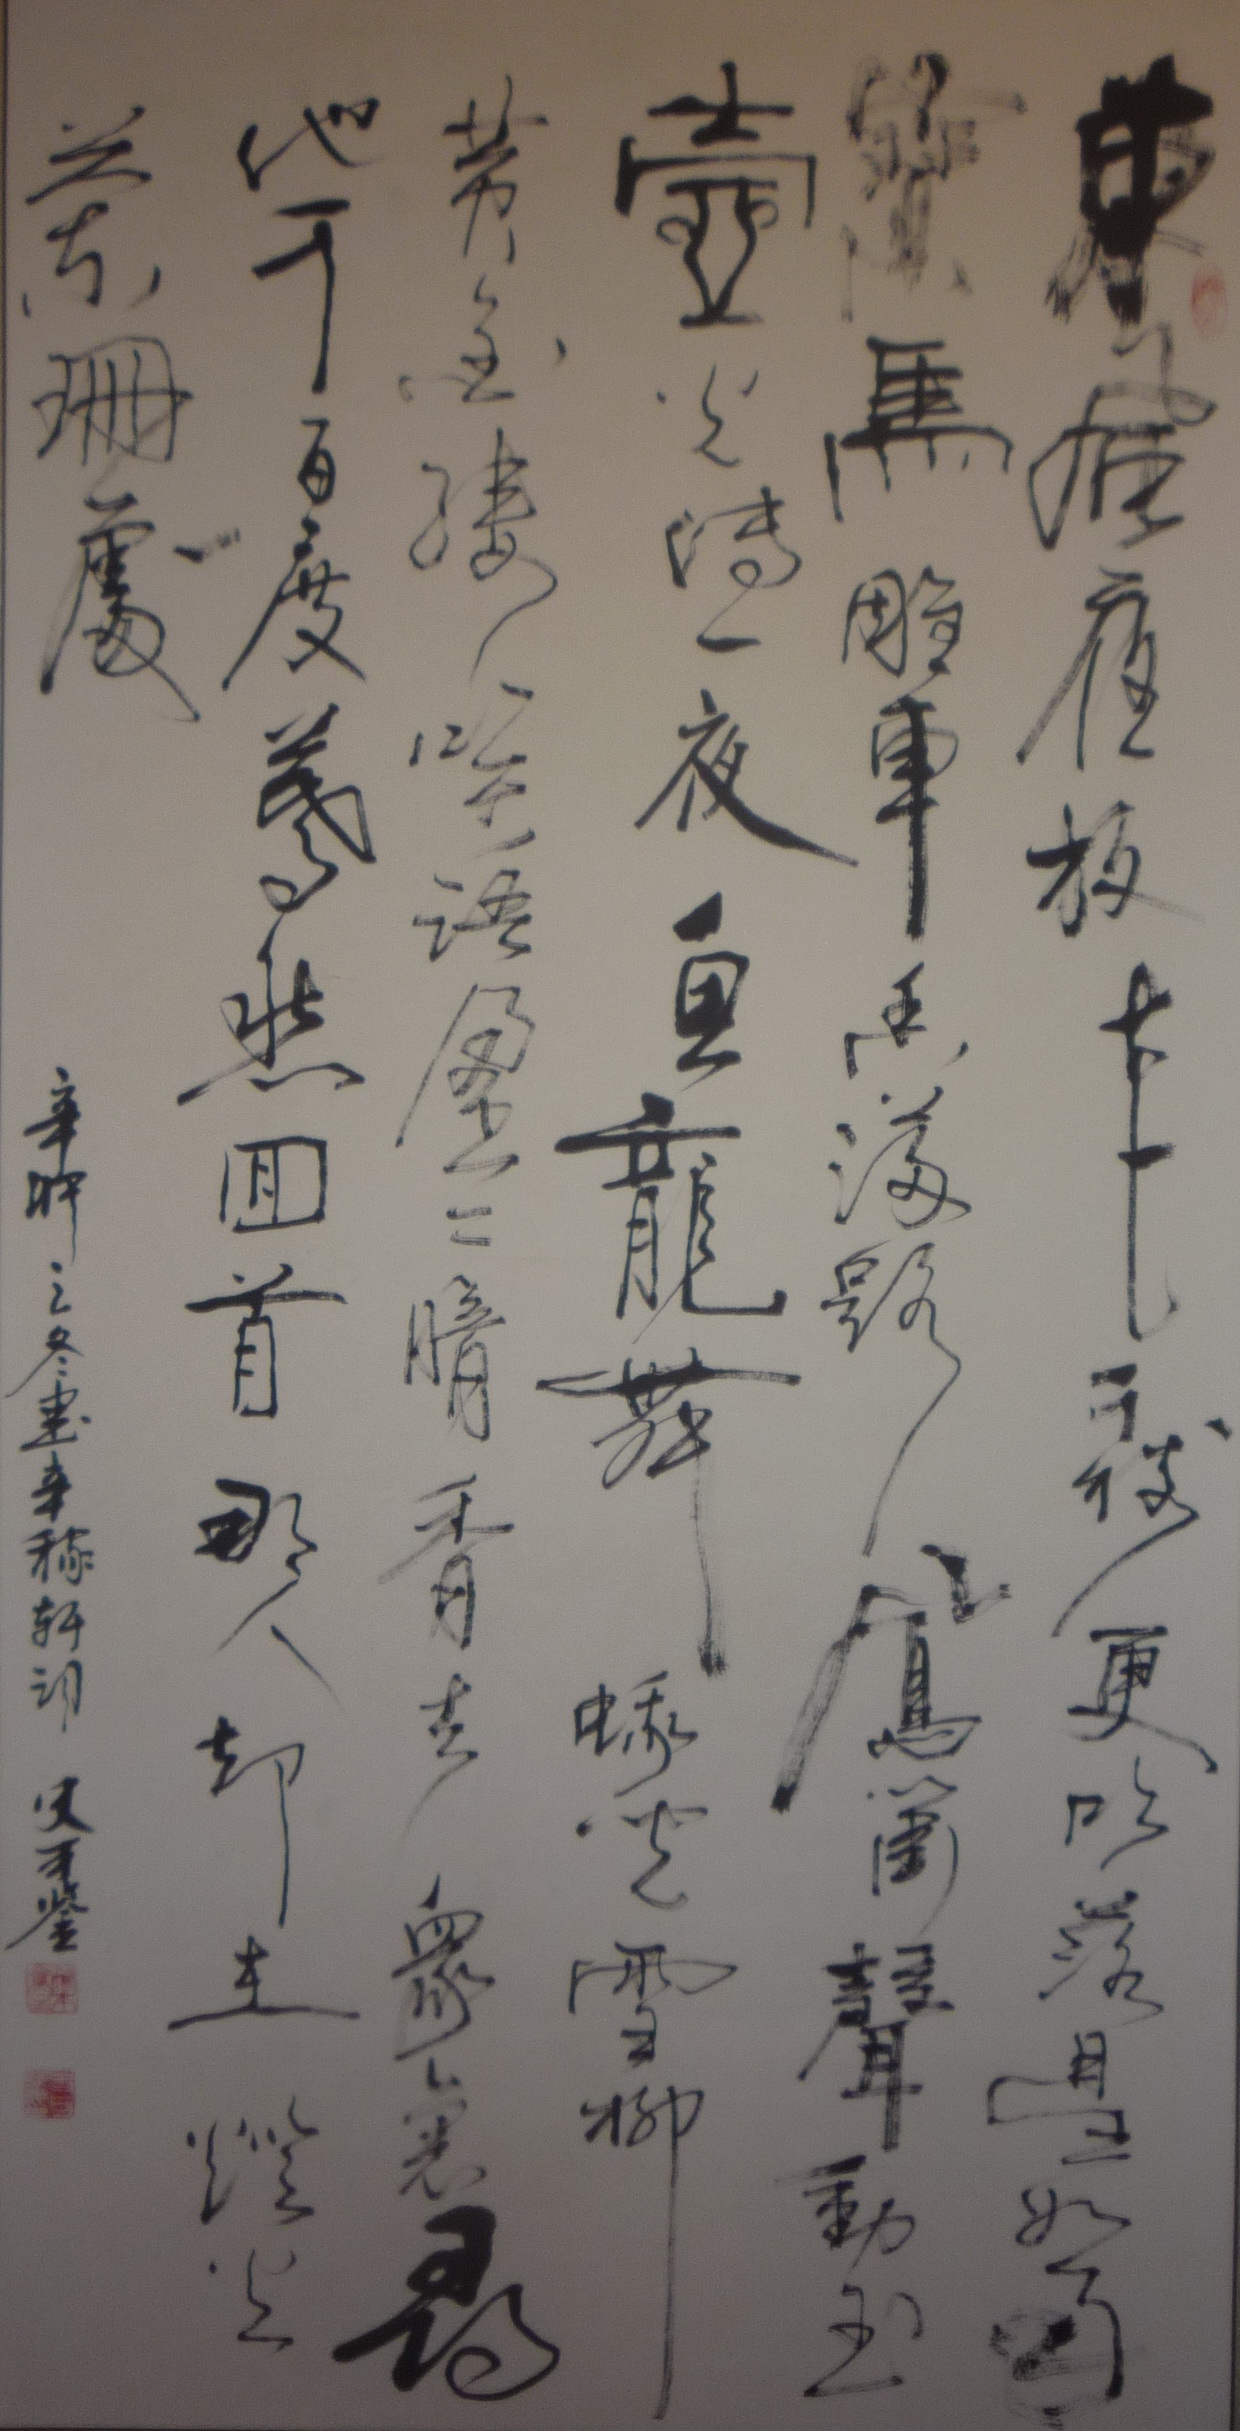 東風夜放花千樹更吹落星如雨
寶馬雕車香滿路鳳簫聲動玉
壺光轉一夜魚龍舞蛾兒雪柳
黃金縷笑語盈々暗香去眾裏尋
他千百度驀然回首那人卻在燈火
闌珊處
辛卯之冬書辛稼軒詞